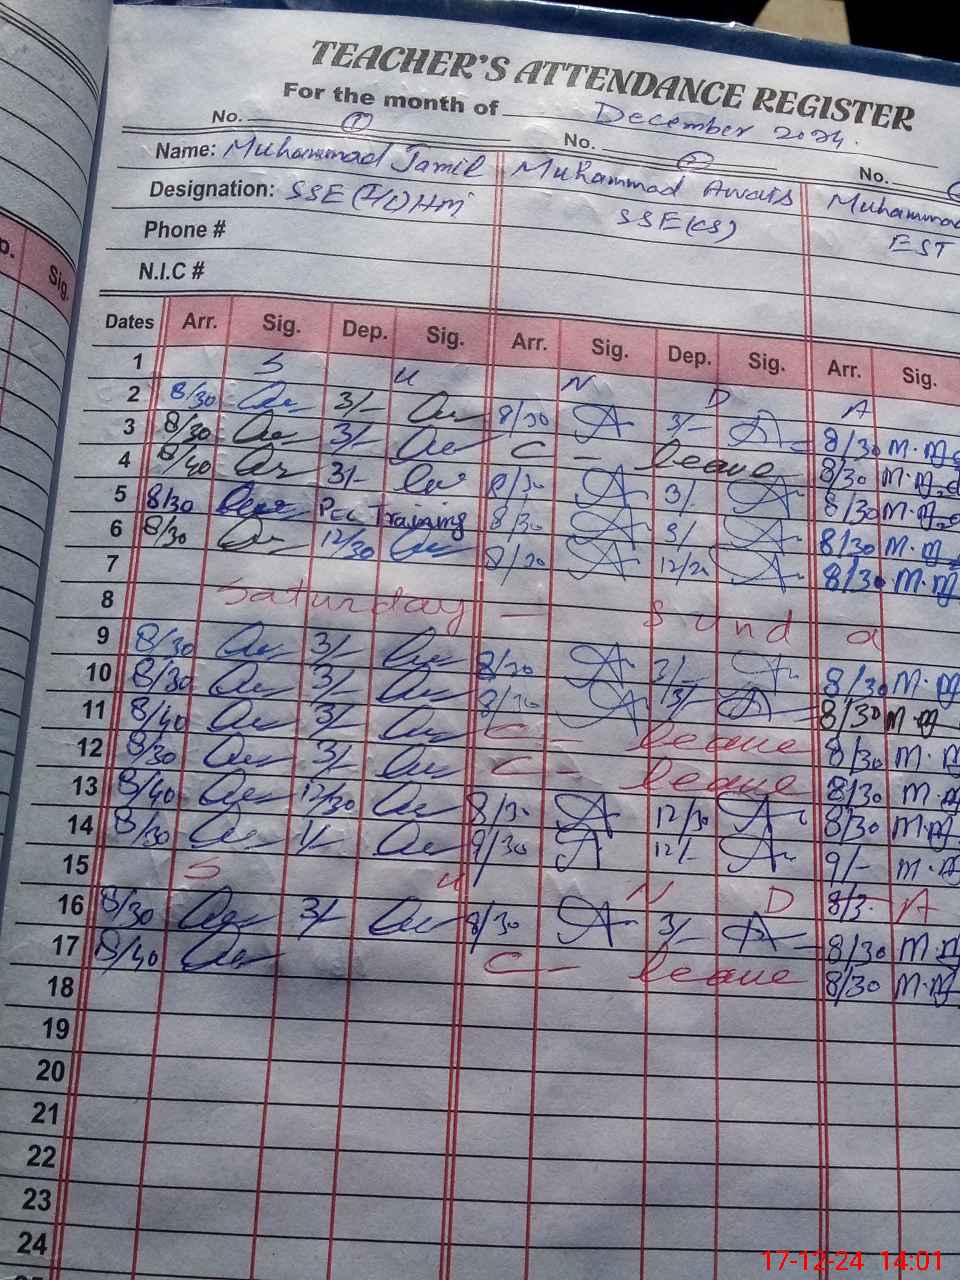 TEACHER'S ATTENDANCE REGISTER
For the month of December 2024.
No. 1 No. 2 No.
Name: Muhammad Jamil Muhammad Awais Muhammad
Designation: SSE (HM SSE(CS) EST
Phone #
N.I.C #
p. Sig.
Dates Arr. Sig. Dep. Sig. Arr. Sig. Dep. Sig. Arr. Sig.
1 S U N D A
2 8/30 3/- 8/30 3/- 8/30 M.M
3 8/30 3/- C - leave 8/30 M.M
4 8/40 3/- 8/30 3/- 8/30 M.M
5 8/30 Training 8/30 3/ 8/30 M.M
6 8/30 12/30 8/30 12/30 8/30 M.M
7
8 Saturday - Sund a
9 8/30 3/- 8/30 3/- 8/30 M.M
10 8/30 3/- 8/30 3/- 8/30 M.M
11 8/40 3/- C - leave 8/30 M.M
12 8/30 3/- C - leave 8/30 M.M
13 8/40 12/30 8/30 12/30 8/30 M.M
14 8/30 9/30 12/- 9/- M.M
15 S U N D 8/3 A
16 8/30 3/- 8/30 3/- 8/30 M.M
17 8/40 C - leave 8/30 M.M
18
19
20
21
22
23
24
17-12-24 14:01